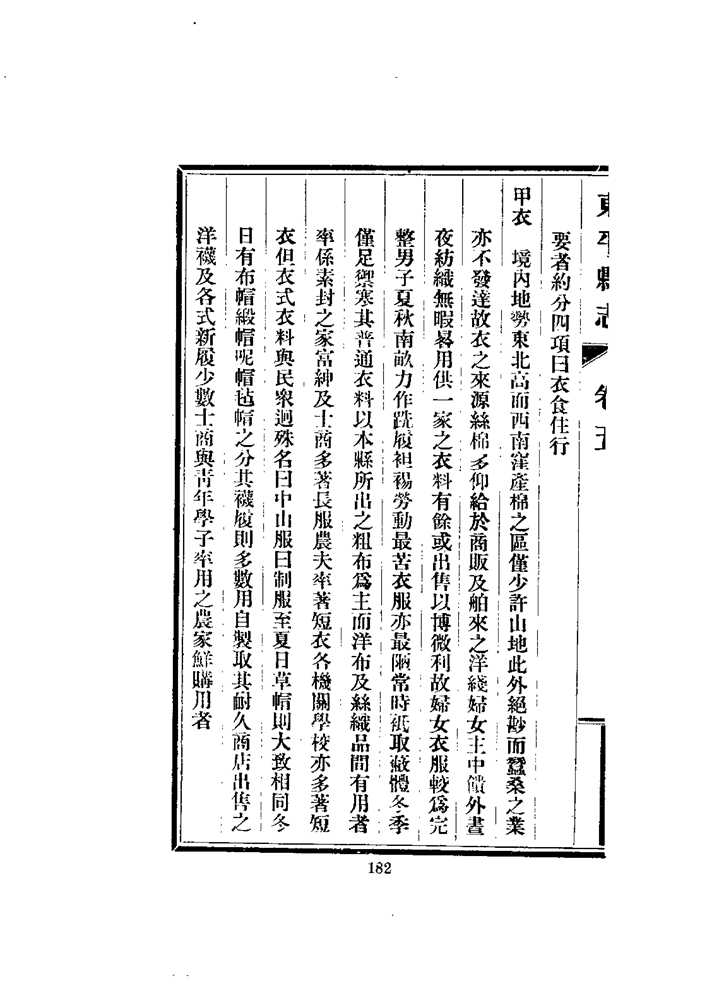 東平縣志 卷五
要者約分四項曰衣食住行
甲衣 境內地勢東北高而西南窪產棉之區僅少許山地此外絕尠而蠶桑之業
亦不發達故衣之來源絲棉多仰給於商販及舶來之洋綫婦女主中饋外晝
夜紡織無暇晷用供一家之衣料有餘或出售以博微利故婦女衣服較爲完
整男子夏秋南畝力作跣履袒裼勞動最苦衣服亦最陋常時祗取蔽體冬季
僅足禦寒其普通衣料以本縣所出之粗布爲主而洋布及絲織品間有用者
率係素封之家富紳及士商多著長服農夫率著短衣各機關學校亦多著短
衣但衣式衣料與民衆迥殊名曰中山服曰制服至夏日草帽則大致相同冬
日有布帽緞帽呢帽毡帽之分其襪履則多數用自製取其耐久商店出售之
洋襪及各式新履少數士商與靑年學子率用之農家鮮購用者
182